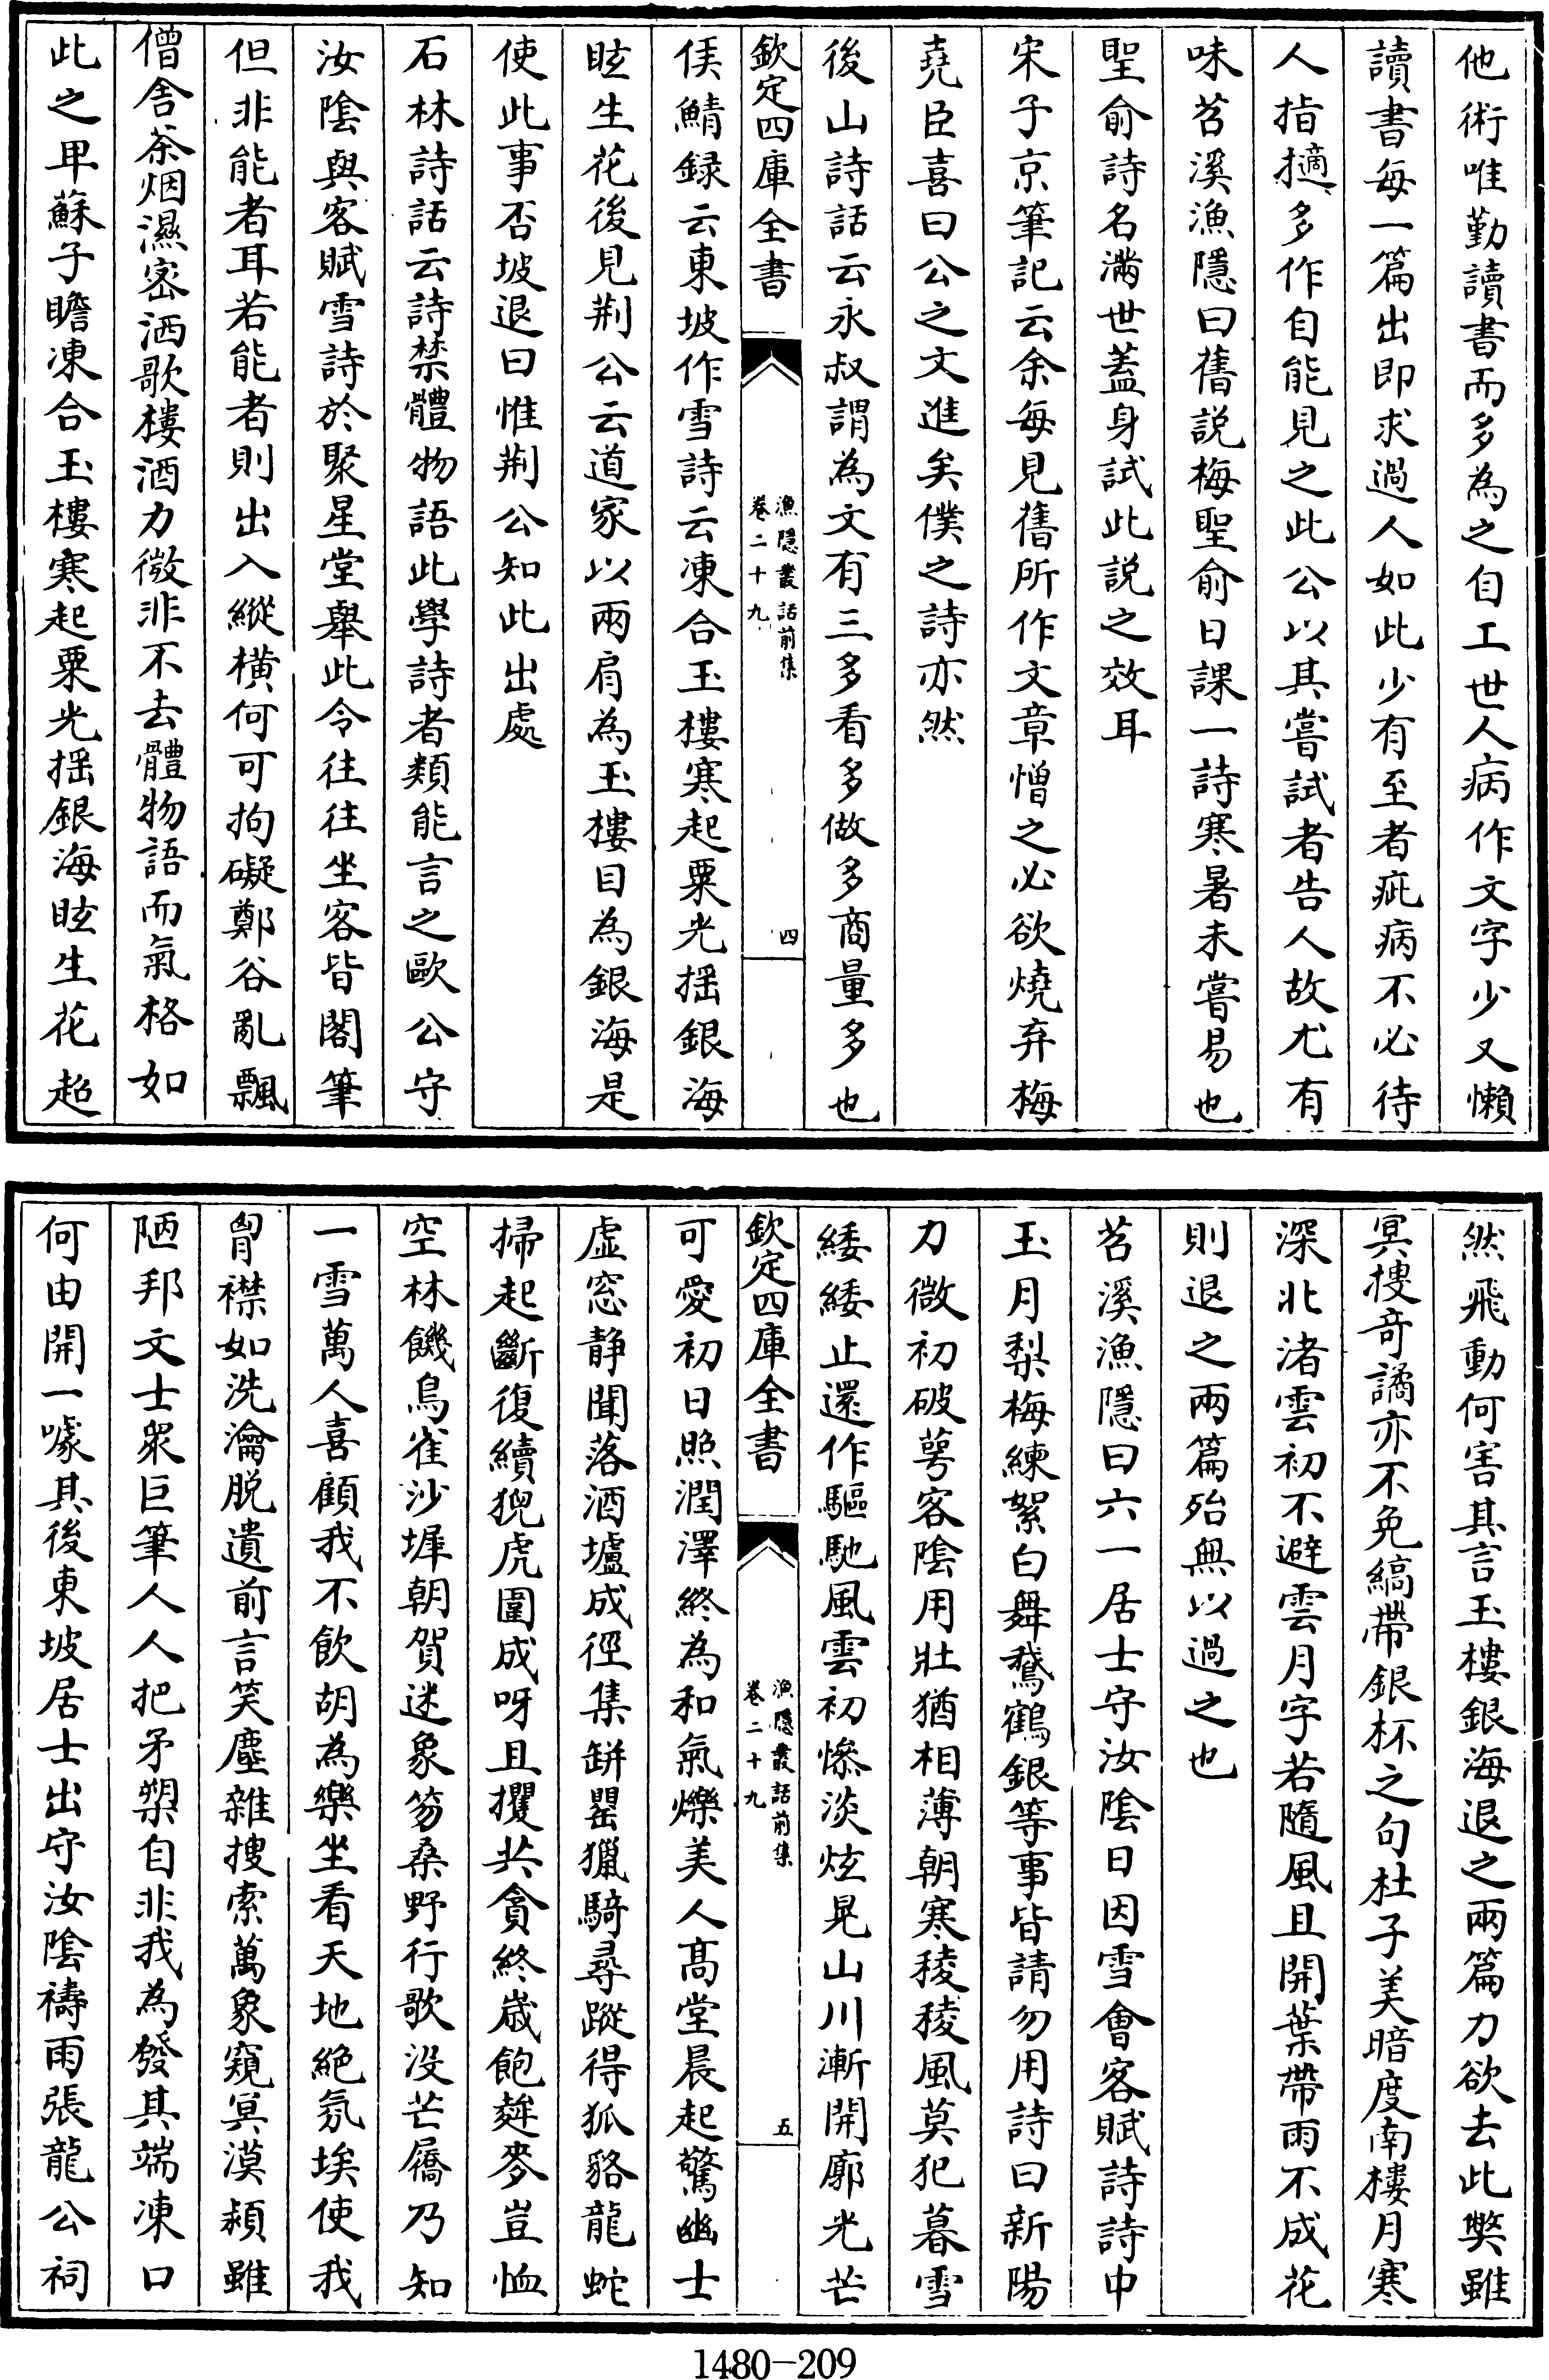 他術唯勤讀書而多為之自工世人病作文字少又懶
讀書每一篇出即求過人如此少有至者疵病不必待
人指擿多作自能見之此公以其嘗試者告人故尤有
味苕溪漁隱曰舊説梅聖俞日課一詩寒暑未嘗易也
聖俞詩名滿世蓋身試此説之效耳
宋子京筆記云余每見舊所作文章憎之必欲燒弃梅
堯臣喜曰公之文進矣僕之詩亦然
後山詩話云永叔謂為文有三多看多做多商量多也
欽定四庫全書
漁隱叢話前集
卷二十九
四
侯鯖録云東坡作雪詩云凍合玉樓寒起粟光摇銀海
眩生花後見荆公云道家以兩肩為玉樓目為銀海是
使此事否坡退曰惟荆公知此出處
石林詩話云詩禁體物語此學詩者類能言之歐公守
汝隂與客賦雪詩於聚星堂舉此令往往坐客皆閣筆
但非能者耳若能者則出入縱横何可拘礙鄭谷亂飄
僧舍茶烟濕密洒歌樓酒力微非不去體物語而氣格如
此之卑蘇子瞻凍合玉樓寒起粟光揺銀海眩生花超
然飛動何害其言玉樓銀海退之兩篇力欲去此獘雖
冥搜奇譎亦不免縞帶銀杯之句杜子美暗度南樓月寒
深北渚雲初不避雲月字若隨風且開葉帶雨不成花
則退之兩篇殆無以過之也
苕溪漁隱曰六一居士守汝隂日因雪會客賦詩詩中
玉月梨梅練絮白舞鵞鶴銀等事皆請勿用詩曰新陽
力微初破萼客隂用壯猶相薄朝寒稜稜風莫犯暮雪
緌緌止還作驅馳風雲初慘淡炫晃山川漸開廓光芒
欽定四庫全書
漁隱叢話前集
卷二十九
五
可愛初日照潤澤終為和氣爍美人髙堂晨起驚幽士
虚窓静聞落酒壚成徑集缾罌獵騎尋蹤得狐貉龍蛇
掃起斷復續猊虎圍成呀且攫共貪終嵗飽麰麥豈恤
空林饑烏雀沙墀朝賀迷象笏桑野行歌没芒屩乃知
一雪萬人喜顧我不飲胡為樂坐看天地絶氛埃使我
胷襟如洗瀹脱遺前言笑塵雜搜索萬象窺冥漠潁雖
陋邦文士衆巨筆人人把矛槊自非我為發其端凍口
何由開一噱其後東坡居士出守汝隂禱雨張龍公祠
1480—209